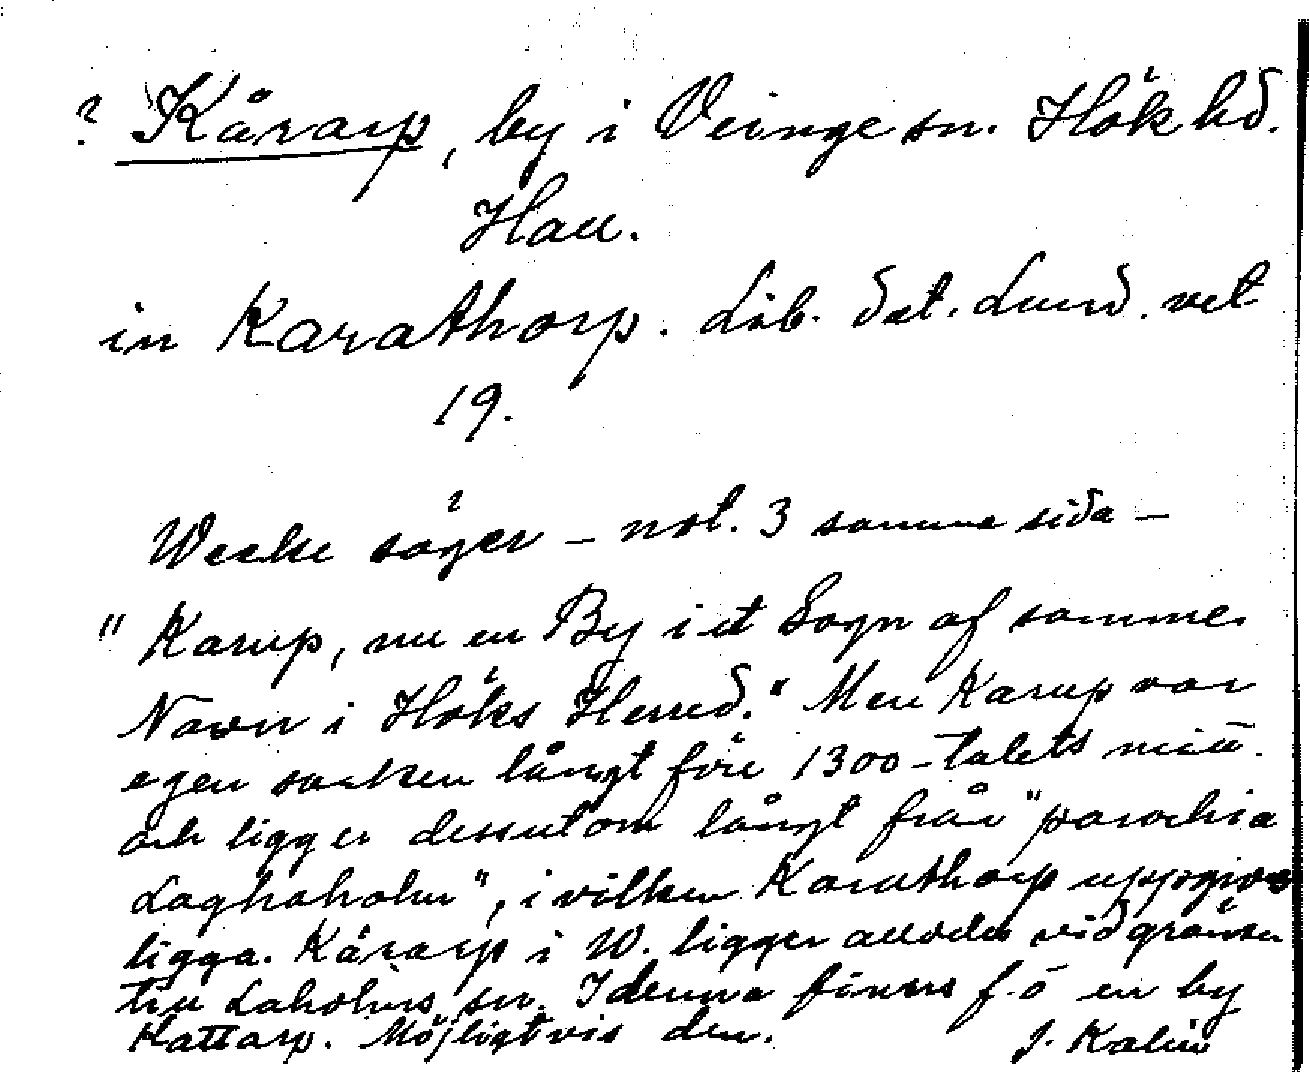 ? Kårarp, by i Veinge sn. Hök hd.
Hall.
in Karathorp. Lib. dat. Lund. vet
19.
Weeke säger – not. 3 samma sida –
"Karup, nu en By i et Sogn af samme
Navn i Höks Herred." Men Karup var
egen socken långt före 1300-talets mitt
och ligger dessutom långt från "parochia
Laghaholm", i vilken Karathorp uppgives
ligga. Kårarp i W. ligger alldeles vid gränsen
till Laholms sn. I denna finns f.ö en by
Kattarp. Möjligtvis den. J. Kalin